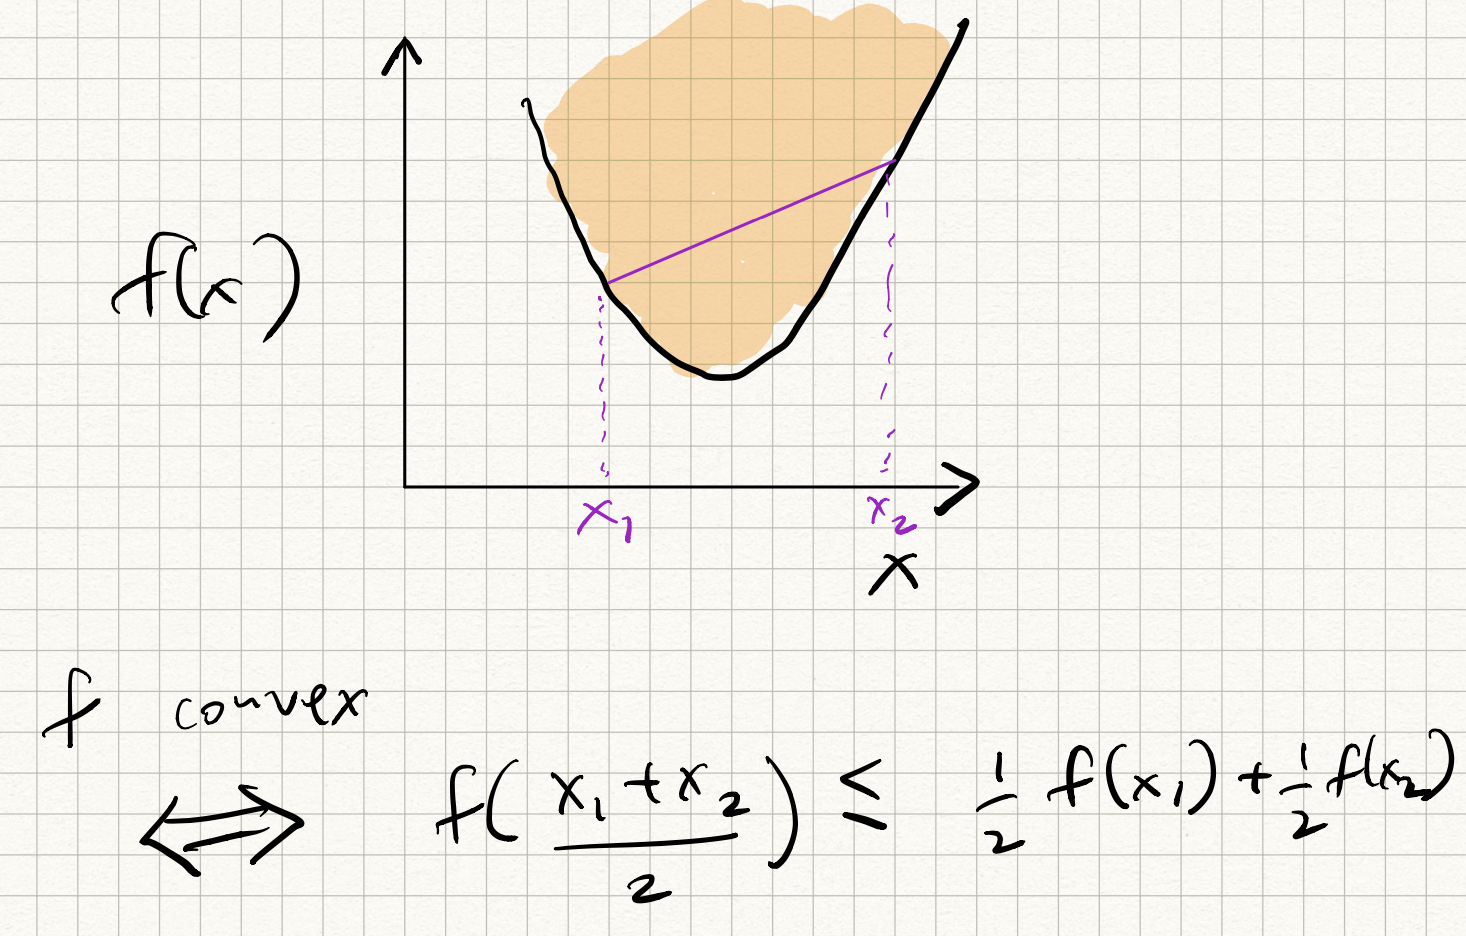 f(x)
x₁ x₂
x
f convex
⟺ f( (x₁ + x₂)/2 ) ≤ 1/2 f(x₁) + 1/2 f(x₂)